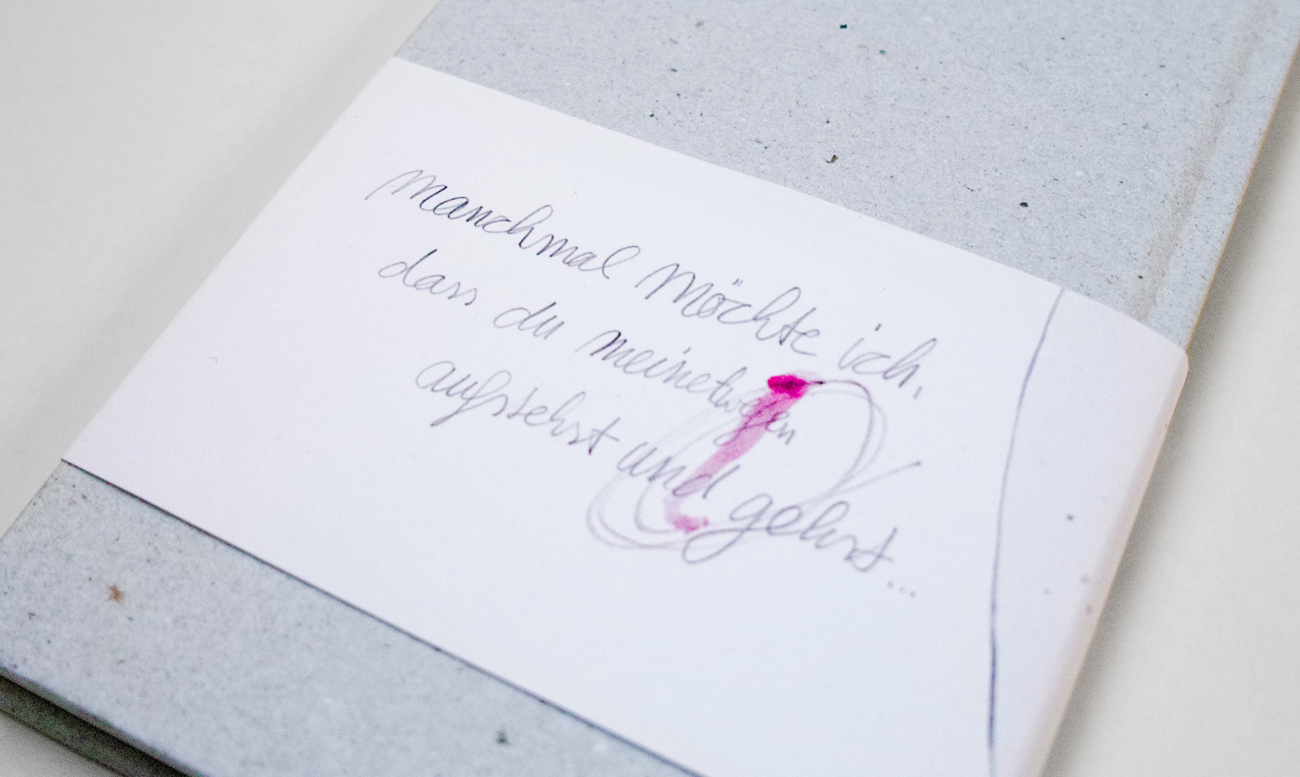 manchmal möchte ich,
dass du meinetwegen
aufstehst und gehst...